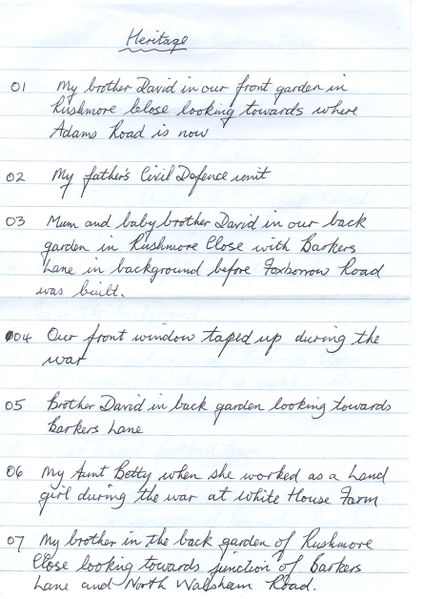 Heritage
01 My brother David in our front garden in
Rushmore Close looking towards where
Adams Road is now
02 My father's Civil Defence unit
03 Mum and baby brother David in our back
garden in Rushmore Close with Barkers
Lane in background before Foxborrow Road
was built.
04 Our front window taped up during the
war
05 Brother David in back garden looking towards
Barkers Lane
06 My Aunt Betty when she worked as a Land
girl during the war at White House Farm
07 My brother in the back garden of Rushmore
Close looking towards junction of Barkers
Lane and North Walsham Road.